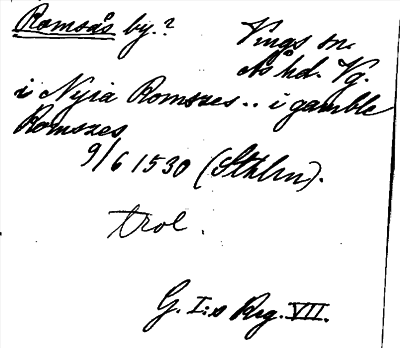 Romsås by.? Vings sn.
Ås hd. Vg.
i Nyia Romszes .. i gamble
Romszes
9/6 1530 (Sthlm).
trol.
G. I:s Reg. VII.